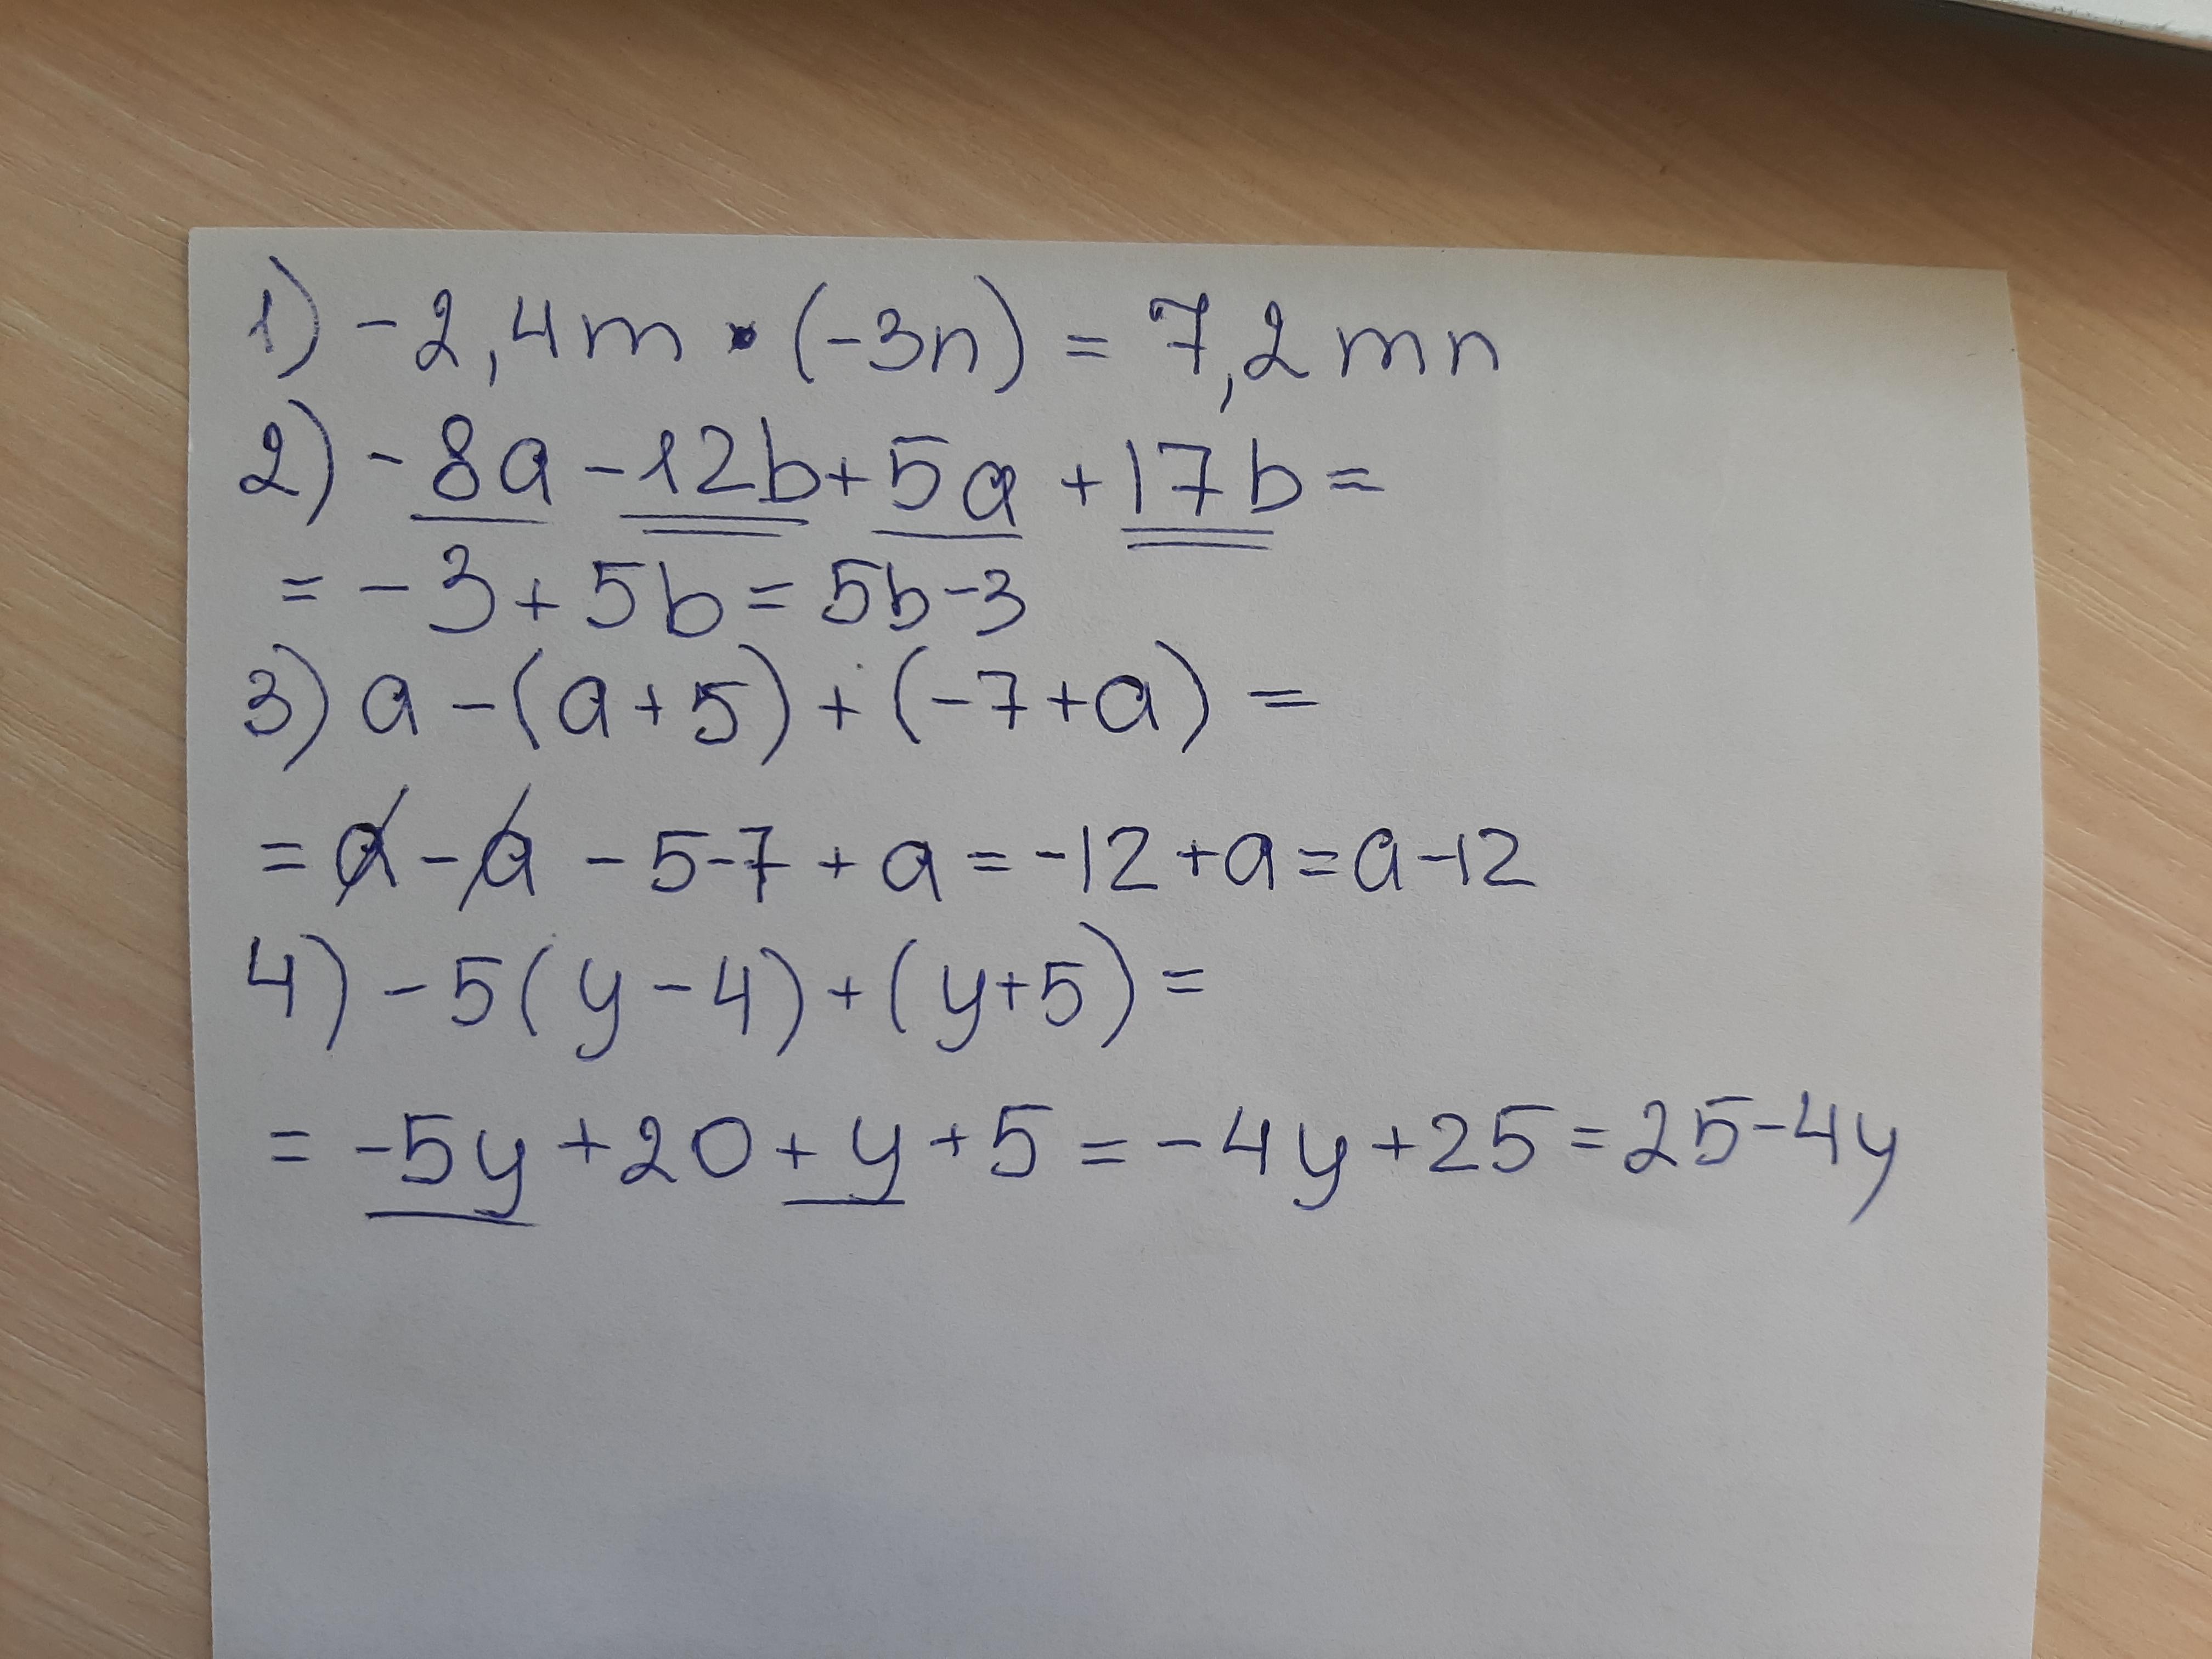 1) -2,4m · (-3n) = 7,2mn
2) -8a - 12b + 5a + 17b =
= -3 + 5b = 5b - 3
3) a - (a + 5) + (-7 + a) =
= a - a - 5 - 7 + a = -12 + a = a - 12
4) -5(y - 4) + (y + 5) =
= -5y + 20 + y + 5 = -4y + 25 = 25 - 4y